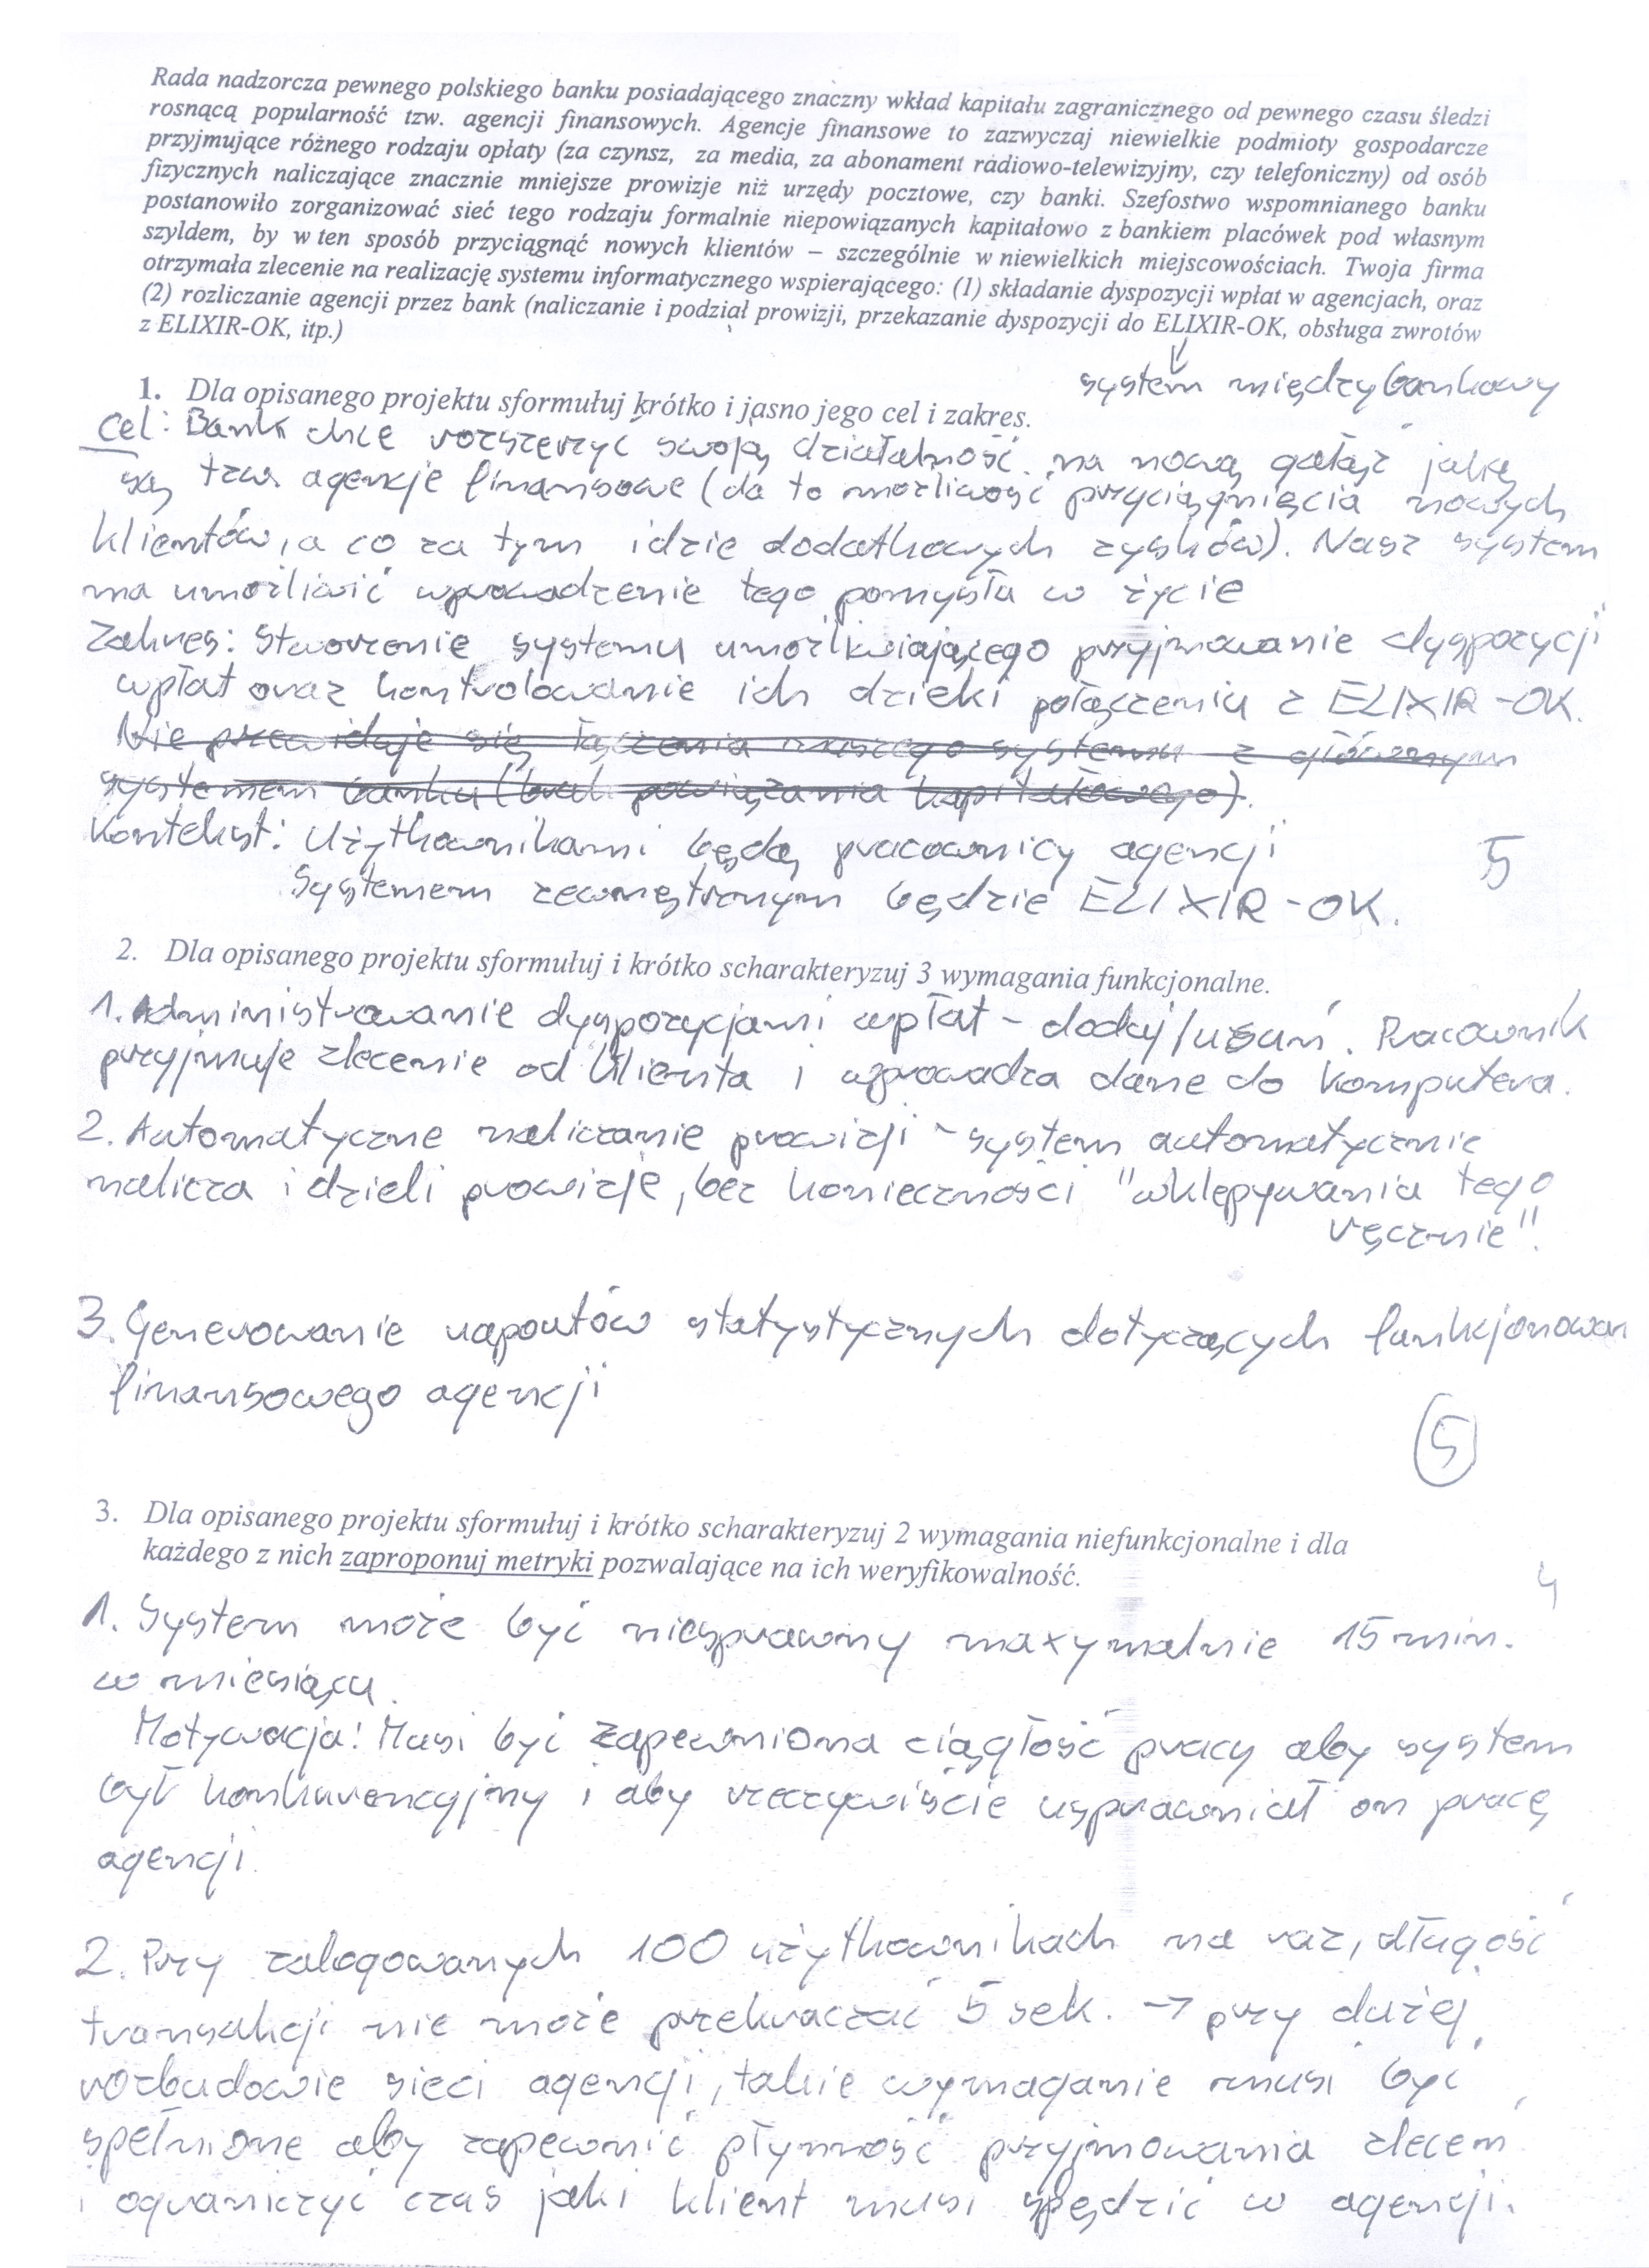 Rada nadzorcza pewnego polskiego banku posiadającego znaczny wkład kapitału zagranicznego od pewnego czasu śledzi
rosnącą popularność tzw. agencji finansowych. Agencje finansowe to zazwyczaj niewielkie podmioty gospodarcze
przyjmujące różnego rodzaju opłaty (za czynsz, za media, za abonament radiowo-telewizyjny, czy telefoniczny) od osób
fizycznych naliczające znacznie mniejsze prowizje niż urzędy pocztowe, czy banki. Szefostwo wspomnianego banku
postanowiło zorganizować sieć tego rodzaju formalnie niepowiązanych kapitałowo z bankiem placówek pod własnym
szyldem, by w ten sposób przyciągnąć nowych klientów – szczególnie w niewielkich miejscowościach. Twoja firma
otrzymała zlecenie na realizację systemu informatycznego wspierającego: (1) składanie dyspozycji wpłat w agencjach, oraz
(2) rozliczanie agencji przez bank (naliczanie i podział prowizji, przekazanie dyspozycji do ELIXIR-OK, obsługa zwrotów
z ELIXIR-OK, itp.)
system międzybankowy
1. Dla opisanego projektu sformułuj krótko i jasno jego cel i zakres.
Cel: Bank chce rozszerzyć swoją działalność na nową gałąź jaką
są tzw. agencje finansowe (da to możliwość przyciągnięcia nowych
klientów, a co za tym idzie dodatkowych zysków). Nasz system
ma umożliwić wprowadzenie tego pomysłu w życie
Zakres: Stworzenie systemu umożliwiającego przyjmowanie dyspozycji
wpłat oraz kontrolowanie ich dzieki połączeniu z ELIXIR-OK.
Nie przewiduje się łączenia naszego systemu z głównym
systemem banku (brak powiązania kapitałowego).
Kontekst: Użytkownikami będą pracownicy agencji
5
Systemem zewnętrznym będzie ELIXIR-OK.
2. Dla opisanego projektu sformułuj i krótko scharakteryzuj 3 wymagania funkcjonalne.
1. Administrowanie dyspozycjami wpłat - dodaj/usuń. Pracownik
przyjmuje zlecenie od klienta i wprowadza dane do komputera.
2. Automatyczne naliczanie prowizji - system automatycznie
nalicza i dzieli prowizje, bez konieczności "wklepywania tego
ręcznie".
3. Generowanie raportów statystycznych dotyczących funkcjonowan
finansowego agencji
5
3. Dla opisanego projektu sformułuj i krótko scharakteryzuj 2 wymagania niefunkcjonalne i dla
każdego z nich zaproponuj metryki pozwalające na ich weryfikowalność.
4
1. System może być niesprawny maxymalnie 15 min.
w miesiącu.
Motywacja: Musi być zapewniona ciągłość pracy aby system
był konkurencyjny i aby rzeczywiście usprawniał on pracę
agencji.
2. Przy zalogowanych 100 użytkownikach na raz, długość
transakcji nie może przekraczać 5 sek. → przy dużej
rozbudowie sieci agencji, takie wymaganie musi być
spełnione aby zapewnić płynność przyjmowania zleceń
i ograniczyć czas jaki klient musi spędzić w agencji.